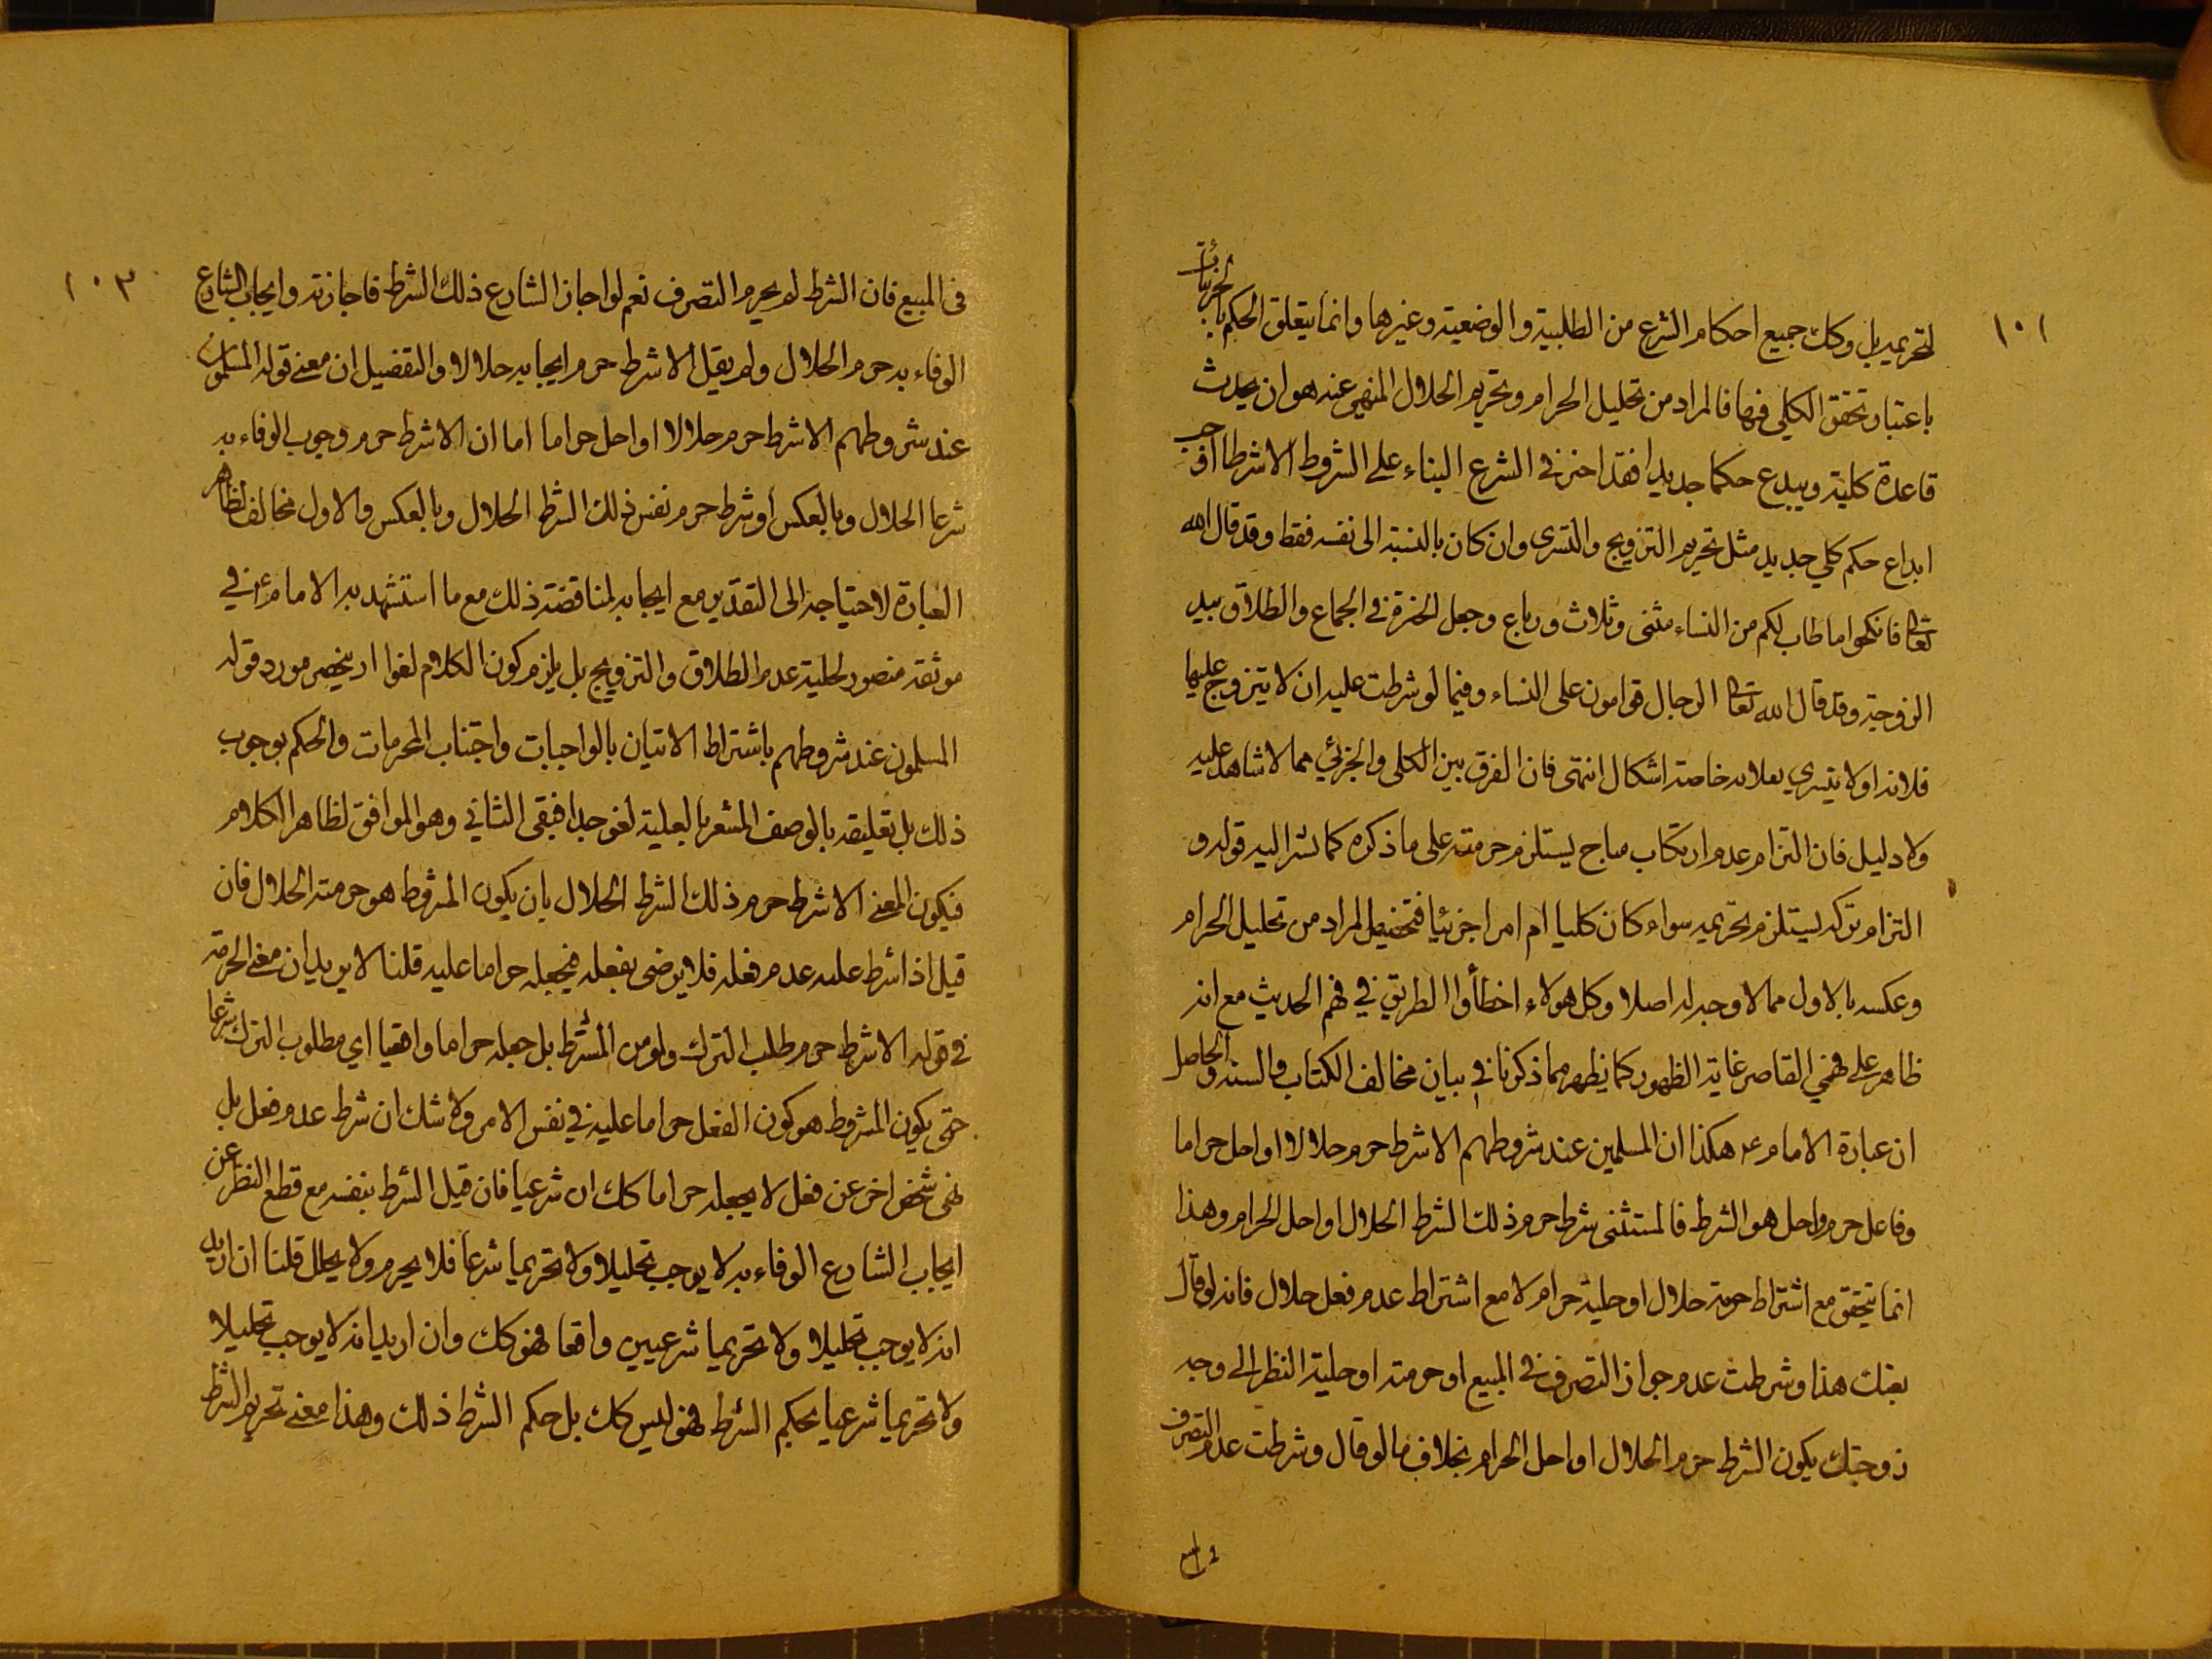 ١٠١
لتحريمه بل وكك جميع احكام الشرع من الطلبية والوضعية وغيرها وانما يتعلق الحكم بالجزئيات
باعتبار تحقق الكلي فيها فالمراد من تحليل الحرام وتحريم الحلال المنهي عنه هو ان يحدث
قاعدة كلية ويبدع حكما جديدا فقد اخبر في الشرع البناء على الشروط الا شرطا اوجب
ابداع حكم كلي جديد مثل تحريم التزويج والتسرى وان كان بالنسبة الى نفسه فقط وقد قال الله
تعالى فانكحوا ما طاب لكم من النساء مثنى وثلاث ورباع وجعل الخيرة في الجماع والطلاق بيد
الزوجة وقد قال الله تعالى الرجال قوامون على النساء وفيما لو شرطت عليه ان لا يتزوج عليها
فلانه او لا يتسري بفلانه خاصة اشكال انتهى فان الفرق بين الكلى والجزئي مما لا شاهد عليه
ولا دليل فان التزام عدم ارتكاب مباح يستلزم حرمته على ما ذكره كما يشر اليه قوله و
التزام تركه يستلزم تحريمه سواء كان كليا ام امرا جزئيا فتخصيص المراد من تحليل الحرام
وعكسه بالاول مما لا وجه له اصلا وكل هولاء اخطأوا الطريق في فهم الحديث مع انه
ظاهر على فهمي القاصر غاية الظهور كما يظهر مما ذكرنا في بيان مخالف الكتاب والسنه والحاصل
ان عبارة الامام ع هكذا ان المسلمين عند شروطهم الا شرط حرم حلالا او احل حراما
وفاعل حرم واحل هو الشرط فالمستثنى شرط حرم ذلك الشرط الحلال او احل الحرام وهذا
انما يتحقق مع اشتراط حرمة حلال او حلية حرام لا مع اشتراط عدم فعل حلال فانه لو قال
بعتك هذا وشرطت عدم جواز التصرف في المبيع او حرمته او حلية النظر الى وجه
زوجتك يكون الشرط حرم الحلال او احل الحرام بخلاف ما لو قال وشرطت عدم التصرف
١٠٣
فى المبيع فان الشرط لم يحرم التصرف نعم لو اجاز الشارع ذلك الشرط فاجازته وايجاب الشارع
الوفاء به حرم الحلال ولم يقل الا شرط حرم ايجابه حلالا والتفصيل ان معنى قوله المسلمون
عند شروطهم الا شرط حرم حلالا او احل حراما اما ان الا شرط حرم وجوب الوفاء به
شرعا الحلال وبالعكس او شرط حرم نفس ذلك الشرط الحلال وبالعكس والاول مخالف لظاهر
العبارة لاحتياجه الى التقدير مع ايجابه لمناقضة ذلك مع ما استشهد به الامام ع في
موثقه منصور لحلية عدم الطلاق والتزويج بل يلزم كون الكلام لغوا او ينحصر مورد قوله
المسلمون عند شروطهم باشتراط الاتيان بالواجبات واجتناب المحرمات والحكم بوجوب
ذلك بل تعليقه بالوصف المشعر بالعلية لغو جدا فبقى الثاني وهو الموافق لظاهر الكلام
فيكون المعنى الا شرط حرم ذلك الشرط الحلال بان يكون المشروط هو حرمة الحلال فان
قيل اذا شرط عليه عدم فعله فلا يرضى بفعله فيجعله حراما عليه قلنا لا يريد ان معنى الحرمة
في قوله الا شرط حرم طلب الترك ولو من المشترط بل جعله حراما واقعيا اي مطلوب الترك شرعا
حتى يكون المشروط هو كون الفعل حراما عليه في نفس الامر ولا شك ان شرط عدم فعل بل
نهى شخص اخر عن فعل لا يجعله حراما كك ان شرعيا فان قيل الشرط بنفسه مع قطع النظر عن
ايجاب الشارع الوفاء به لا يوجب تحليلا ولا تحريما شرعا فلا يحرم ولا يحلل قلنا ان اريد
انه لا يوجب تحليلا ولا تحريما شرعيين واقعا فهو كك وان اريد انه لا يوجب تحليلا
ولا تحريما شرعيا بحكم الشرط فهو ليس كك بل حكم الشرط ذلك وهذا معنى تحريم الشرط